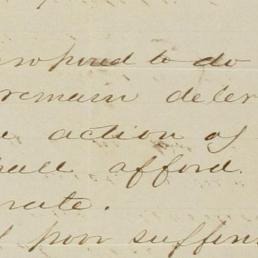 to do
remain deter
action of
hall afford.
rate.
poor sufferi